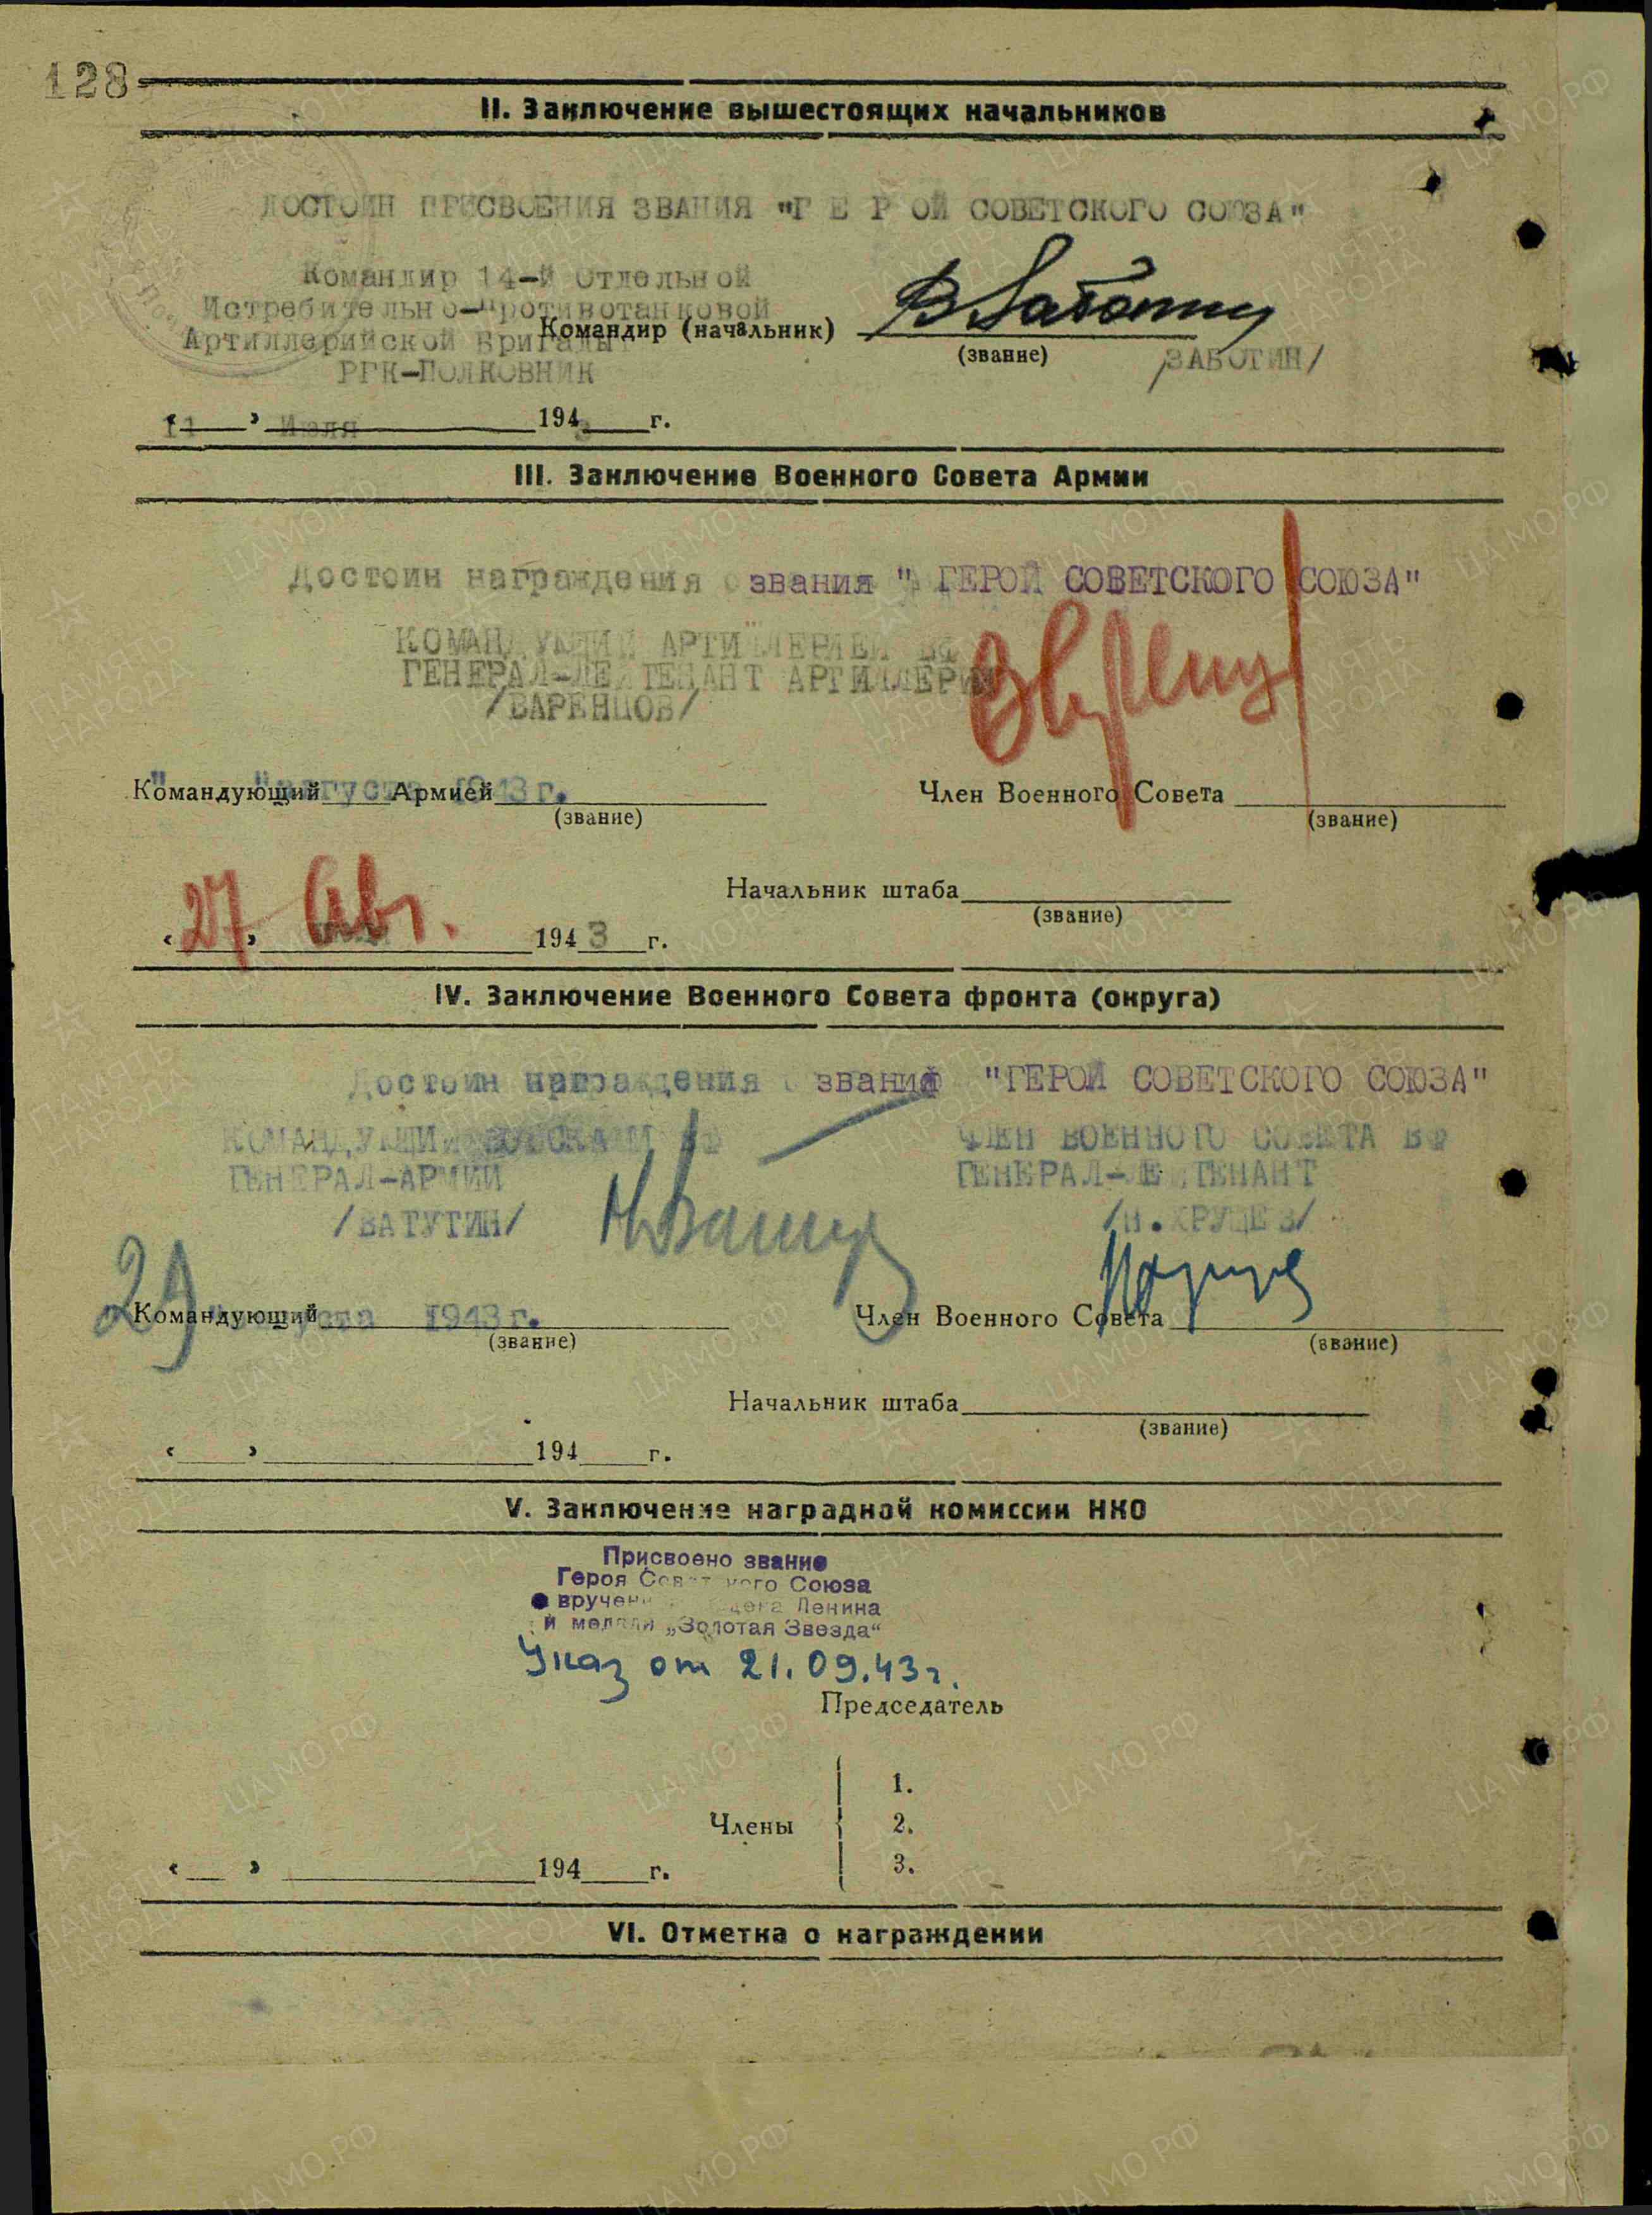 128
II. Заключение вышестоящих начальников
ДОСТОИН ПРИСВОЕНИЯ ЗВАНИЯ "Г Е Р ОЙ СОВЕТСКОГО СОЮЗА"
Командир 14-й Отдельной
Истребительно-Противотанковой
Артиллерийской Бригады
Командир (начальник)
(звание)
/ЗАБОТИН/
РГК-ПОЛКОВНИК
« 11 » Июля 194 г.
III. Заключение Военного Совета Армии
Достоин награждения звания "ГЕРОЙ СОВЕТСКОГО СОЮЗА"
КОМАНДУЮЩИЙ АРТИЛЛЕРИЕЙ ВФ
ГЕНЕРАЛ-ЛЕЙТЕНАНТ АРТИЛЛЕРИИ
/ВАРЕНЦОВ/
" " августа 1943 г.
Командующий Армией
(звание)
Член Военного Совета
(звание)
Начальник штаба
(звание)
« 27 » Авг. 1943 г.
IV. Заключение Военного Совета фронта (округа)
Достоин награждения звания "ГЕРОЙ СОВЕТСКОГО СОЮЗА"
КОМАНДУЮЩИЙ ВОЙСКАМИ ВФ
ЧЛЕН ВОЕННОГО СОВЕТА ВФ
ГЕНЕРАЛ-АРМИИ
ГЕНЕРАЛ-ЛЕЙТЕНАНТ
/ВАТУТИН/
/Н.ХРУЩЕВ/
29 августа 1943 г.
Командующий
(звание)
Член Военного Совета
(звание)
Начальник штаба
(звание)
« » 194 г.
V. Заключение наградной комиссии НКО
Присвоено звание
Героя Советского Союза
с вручением ордена Ленина
и медали „Золотая Звезда“
Указ от 21.09.43г.
Председатель
Члены
1.
2.
3.
« » 194 г.
VI. Отметка о награждении